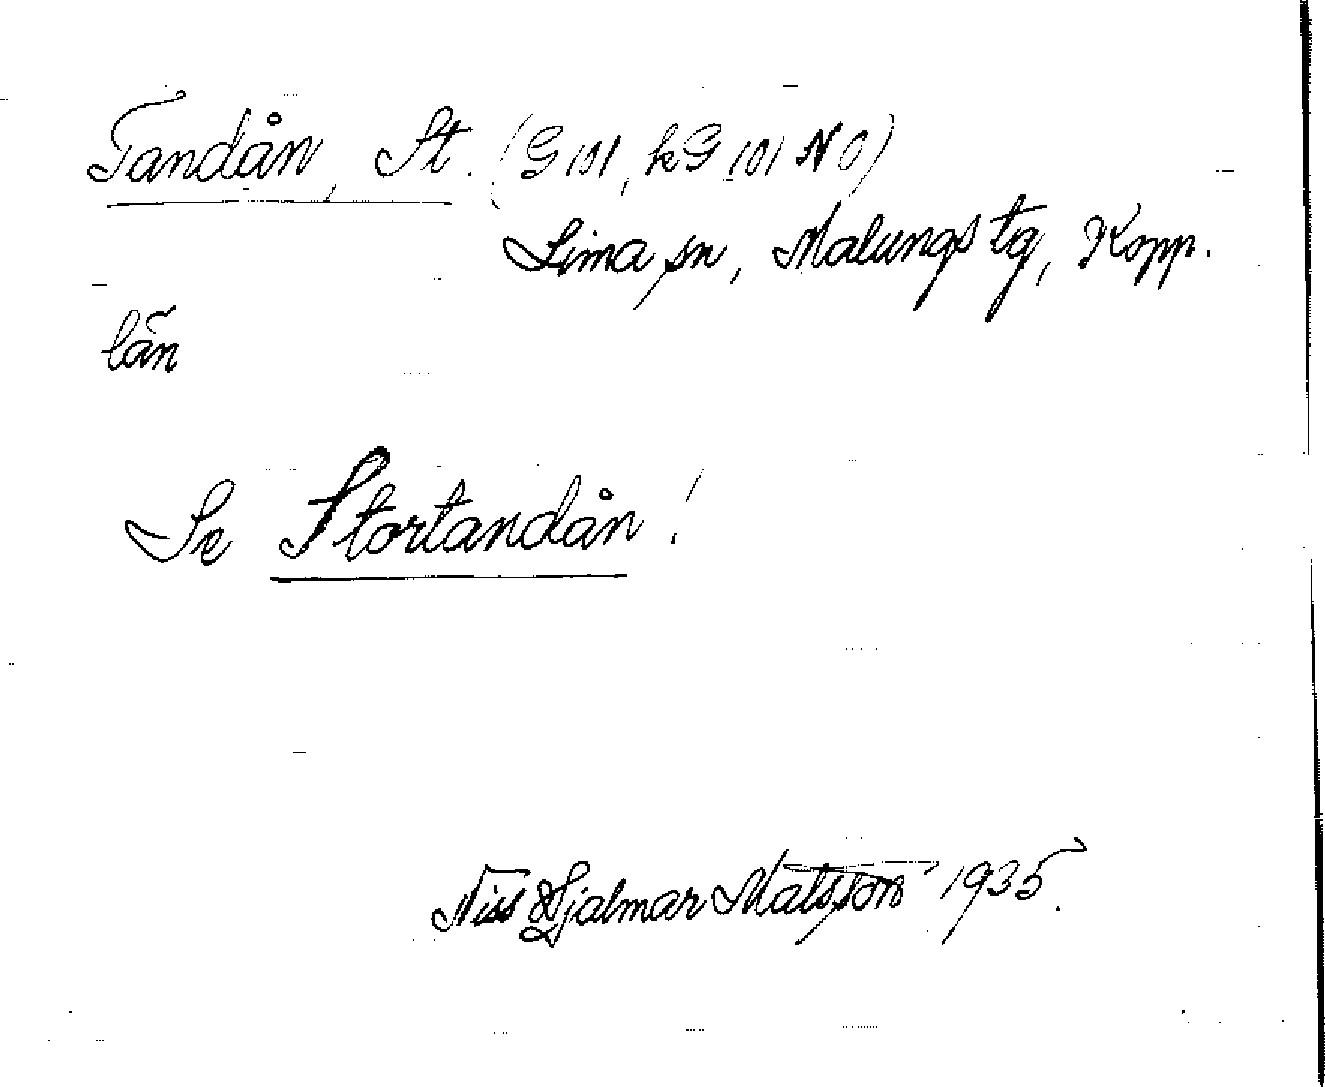 Tandån, St. (G 101, kG 101 NO)
Lima sn, Malungs tg, Kopp.
län
Se Stortandån!
Niss Hjalmar Matsson 1935.